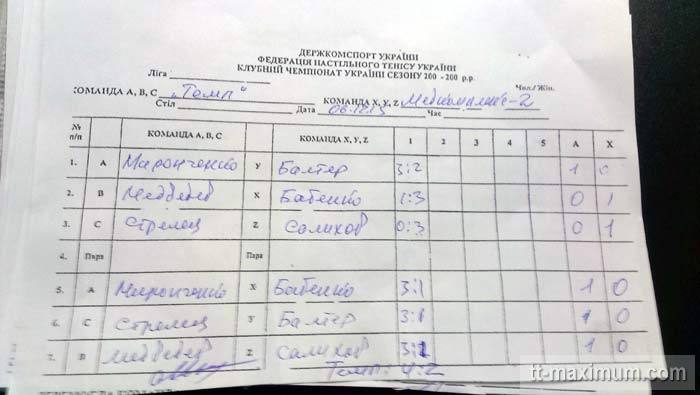 ДЕРЖКОМСПОРТ УКРАЇНИ
ФЕДЕРАЦІЯ НАСТІЛЬНОГО ТЕНІСУ УКРАЇНИ
КЛУБНИЙ ЧЕМПІОНАТ УКРАЇНИ СЕЗОНУ 200 -200 р.р.
Ліга Чол./ Жін.
КОМАНДА А, В, С „Темп“ КОМАНДА X, Y, Z
Стіл Дата 06.12.13 Час
№ п/п КОМАНДА А, В, С КОМАНДА X, Y, Z 1 2 3 4 5 А X
1. А Мирончено У Балтер 3:2 1 0
2. В Медведев X Бабенко 1:3 0 1
3. С Стрелец Z Салихов 0:3 0 1
4. Пара Пара
5. А Мирончено X Бабенко 3:1 1 0
6. С Стрелец У Балтер 3:1 1 0
7. В Медведев Z Салихов 3:1 1 0
Темп: 4:2
tt-maximum.com